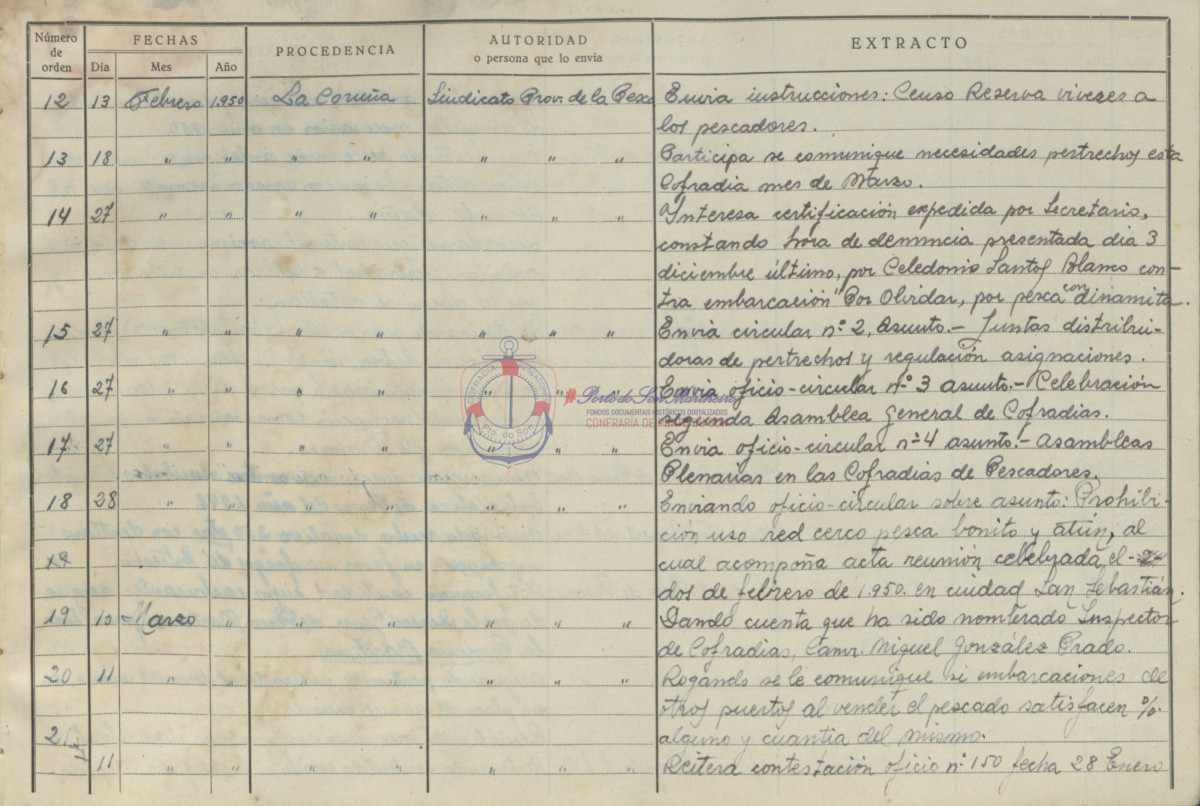 Número de orden FECHAS PROCEDENCIA AUTORIDAD o persona que lo envía EXTRACTO
Día Mes Año
12 13 Febrero 1950 La Coruña Sindicato Prov. de la Pesca Envia instrucciones: Censo Reserva viveres a
los pescadores.
13 18 " " " " " " " Participa se comunique necesidades pertrechos esta
Cofradia mes de Marzo.
14 27 " " " " " " " Interesa certificación expedida por Secretario,
constando hora de denuncia presentada dia 3
diciembre último, por Celedonio Santos Blanco con-
tra embarcación "Por Olvidar, por pesca con dinamita.
15 27 " " " " " " " Envia circular nº 2, Asunto.- Juntas distribui-
doras de pertrechos y regulación asignaciones.
16 27 " " " " " " Envia oficio-circular nº 3 asunto.- Celebración
segunda Asamblea General de Cofradias.
17 27 " " " " " " Envia oficio-circular nº 4 asunto.- Asambleas
Plenarias en las Cofradias de Pescadores.
18 28 " " " " " " Enviando oficio-circular sobre asunto: Prohibi-
ción uso red cerco pesca bonito y atún, al
cual acompaña acta reunión cebebrada el -
dos de febrero de 1.950 en ciudad San Sebastián.
19 10 Marzo " " " " " " Dando cuenta que ha sido nombrado Inspector
de Cofradias, Camr. Miguel González Prado.
20 11 " " " " " " " Rogando se le comunique si embarcaciones de
otros puertos al vender el pescado satisfacen %
alguno y cuantia del mismo.
21
11 " " " " " " " Reitera contestación oficio nº 150 fecha 28 Enero
COFRADIA PESCADORES
Pto. do Son
#Porto do Son Mariñeiro
FONDOS DOCUMENTAIS HISTÓRICOS DIGITALIZADOS
CONFRARÍA DE